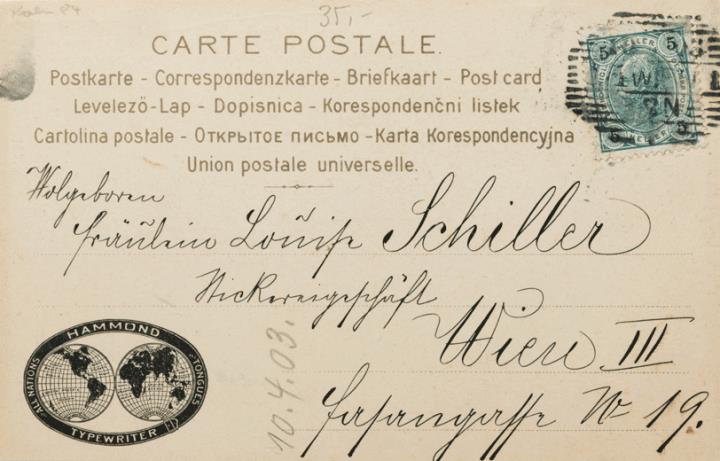 35,-
CARTE POSTALE.
Postkarte - Correspondenzkarte - Briefkaart - Post card
Levelező-Lap - Dopisnica - Korespondenčni listek
Cartolina postale - Открытое письмо - Karta Korespondencyjna
Union postale universelle.
5 HELLER 5
WIEN
5 HELLER 5
Wolgeboren
Fräulein Louise Schiller
Stickereigeschäft
Wien III
Fasangasse No 19.
10.4.03.
HAMMOND
ALL NATIONS
TONGUES
TYPEWRITER